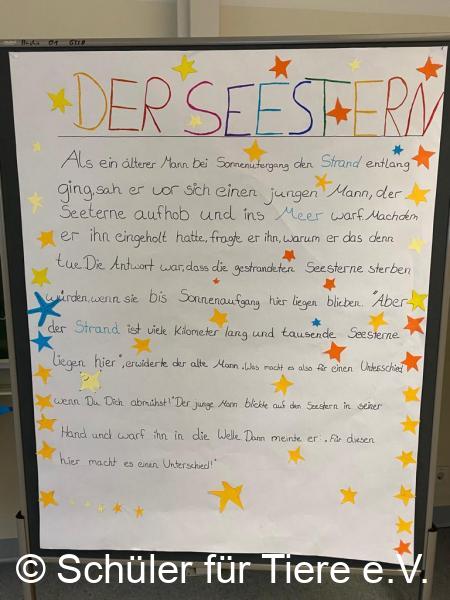 DER SEESTERN
Als ein älterer Mann bei Sonnenuntergang den Strand entlang
ging, sah er vor sich einen jungen Mann, der
Seeterne aufhob und ins Meer warf. Machdem
er ihn eingeholt hatte, fragte er ihn, warum er das denn
tue. Die Antwort war, dass die gestrandeten Seesterne sterben
würden, wenn sie bis Sonnenaufgang hier liegen blieben. "Aber
der Strand ist viele Kilometer lang und tausende Seesterne
liegen hier", erwiderte der alte Mann. „Was macht es also für einen Unterschied
wenn Du Dich abmühst!" Der junge Mann blickte auf den Seestern in seiner
Hand und warf ihn in die Welle. Dann meinte er: „Für diesen
hier macht es einen Unterschied!"
© Schüler für Tiere e.V.